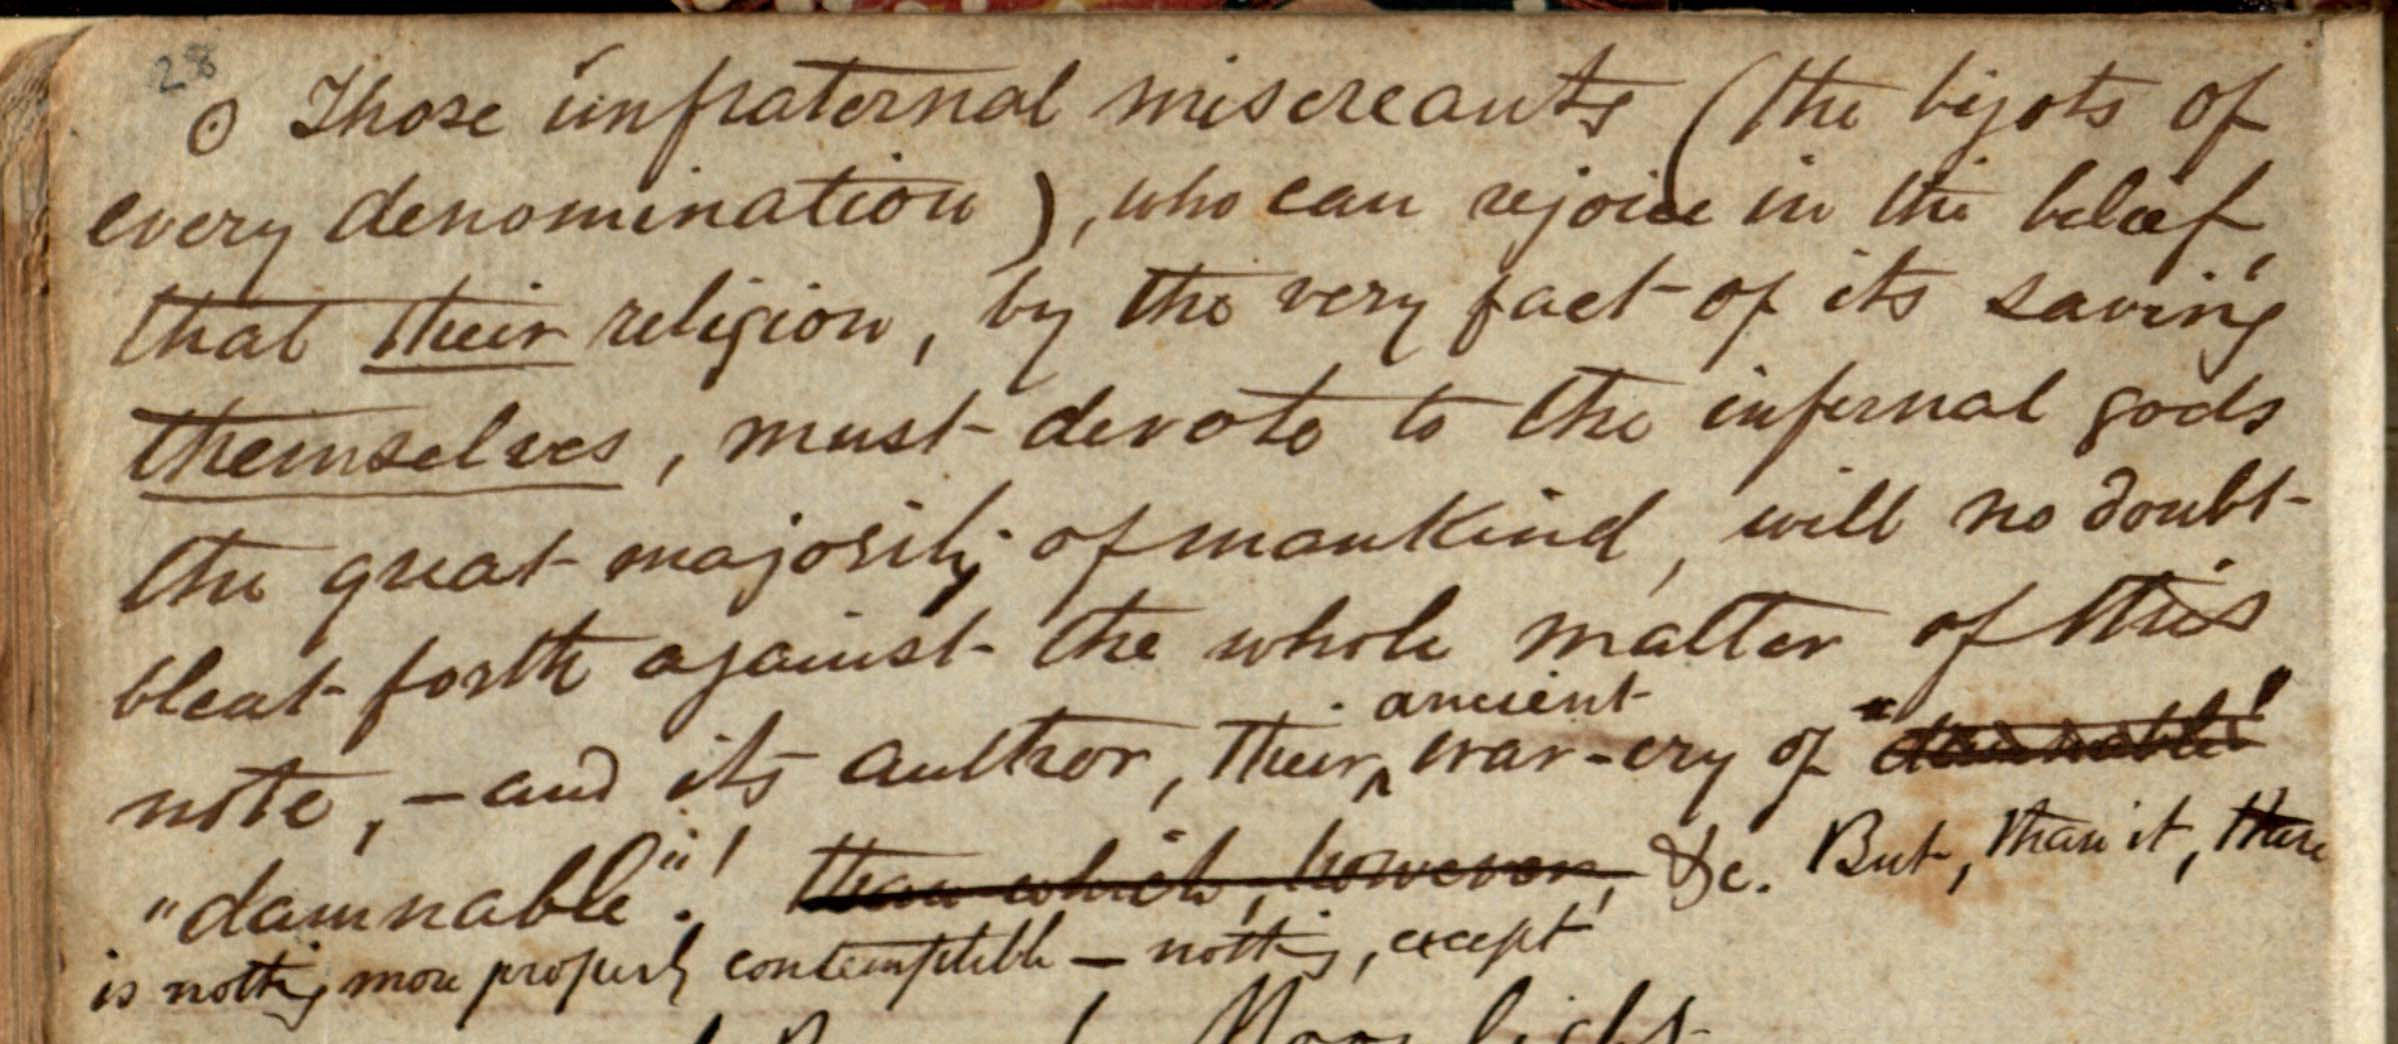 28
⊙ Those unfraternal miscreants (the bigots of
every denomination), who can rejoice in the belief,
that their religion, by the very fact of its saving
themselves, must devote to the infernal gods
the great majority of mankind, will no doubt
bleat forth against the whole matter of this
note, — and its author, their ancient war-cry of "damnable"
"damnable"! than which, however, &c. But, than it, there
is nothing more properly contemptible — nothing, except